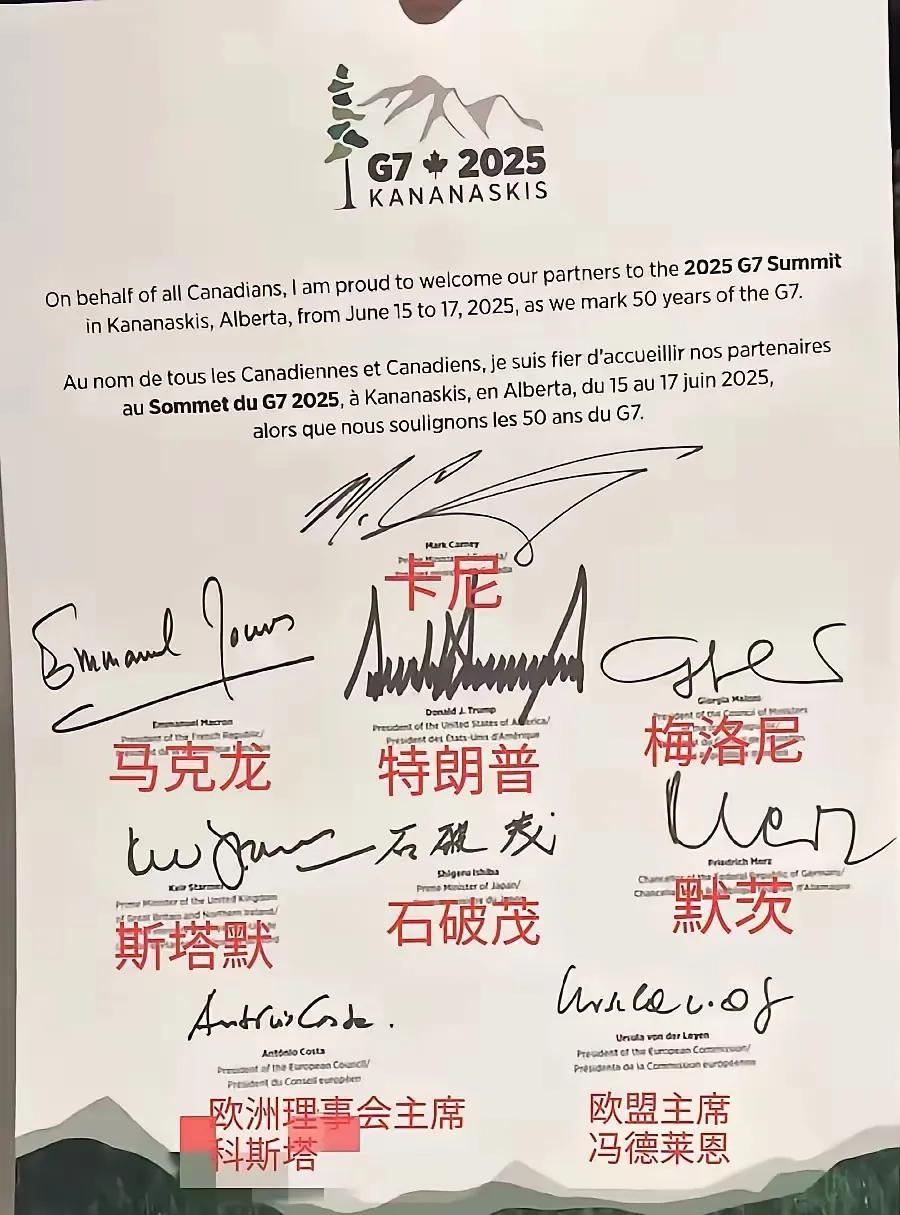 G7 2025
KANANASKIS
On behalf of all Canadians, I am proud to welcome our partners to the 2025 G7 Summit
in Kananaskis, Alberta, from June 15 to 17, 2025, as we mark 50 years of the G7.
Au nom de tous les Canadiennes et Canadiens, je suis fier d'accueillir nos partenaires
au Sommet du G7 2025, à Kananaskis, en Alberta, du 15 au 17 juin 2025,
alors que nous soulignons les 50 ans du G7.
Mark Carney
卡尼
Emmanuel Macron
President of the French Republic/
马克龙
Donald J. Trump
President of the United States of America/
Président des États-Unis d'Amérique
特朗普
Giorgia Meloni
President of the Council of Ministers
梅洛尼
Keir Starmer
Prime Minister of the United Kingdom
of Great Britain and Northern Ireland/
斯塔默
石破茂
Shigeru Ishiba
Prime Minister of Japan/
石破茂
Friedrich Merz
Chancellor of the Federal Republic of Germany/
默茨
António Costa
António Costa
President of the European Council/
Président du Conseil européen
欧洲理事会主席
科斯塔
Ursula von der Leyen
President of the European Commission/
Présidente de la Commission européenne
欧盟主席
冯德莱恩